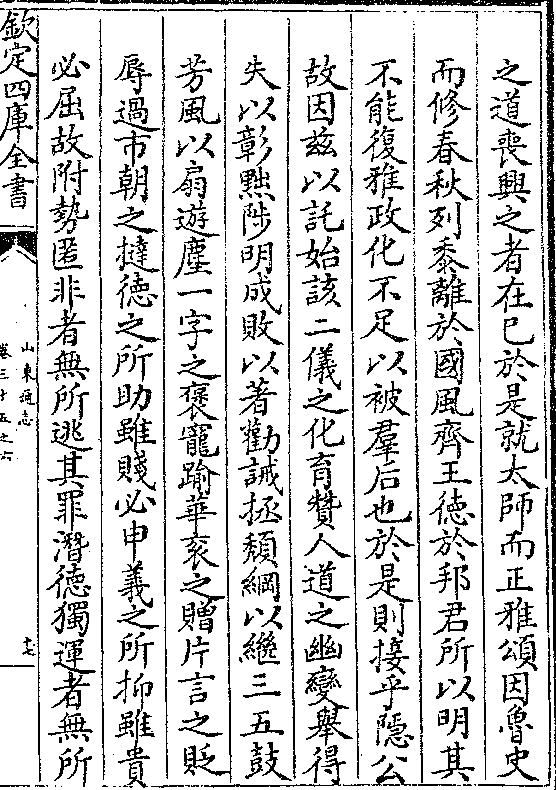 之道喪興之者在已於是就太師而正雅頌因魯史
而修春秋列黍離於國風齊王徳於邦君所以明其
不能復雅政化不足以被羣后也於是則接乎隱公
故因兹以託始該二儀之化育贊人道之幽變舉得
失以彰黜陟明成敗以著勸誡拯頽綱以繼三五鼓
芳風以扇遊塵一字之褒寵踰華衮之贈片言之貶
辱過市朝之撻徳之所助雖賤必申義之所抑雖貴
必屈故附勢匿非者無所逃其罪潛徳獨運者無所
欽定四庫全書
山東通志
卷三十五之六
十七